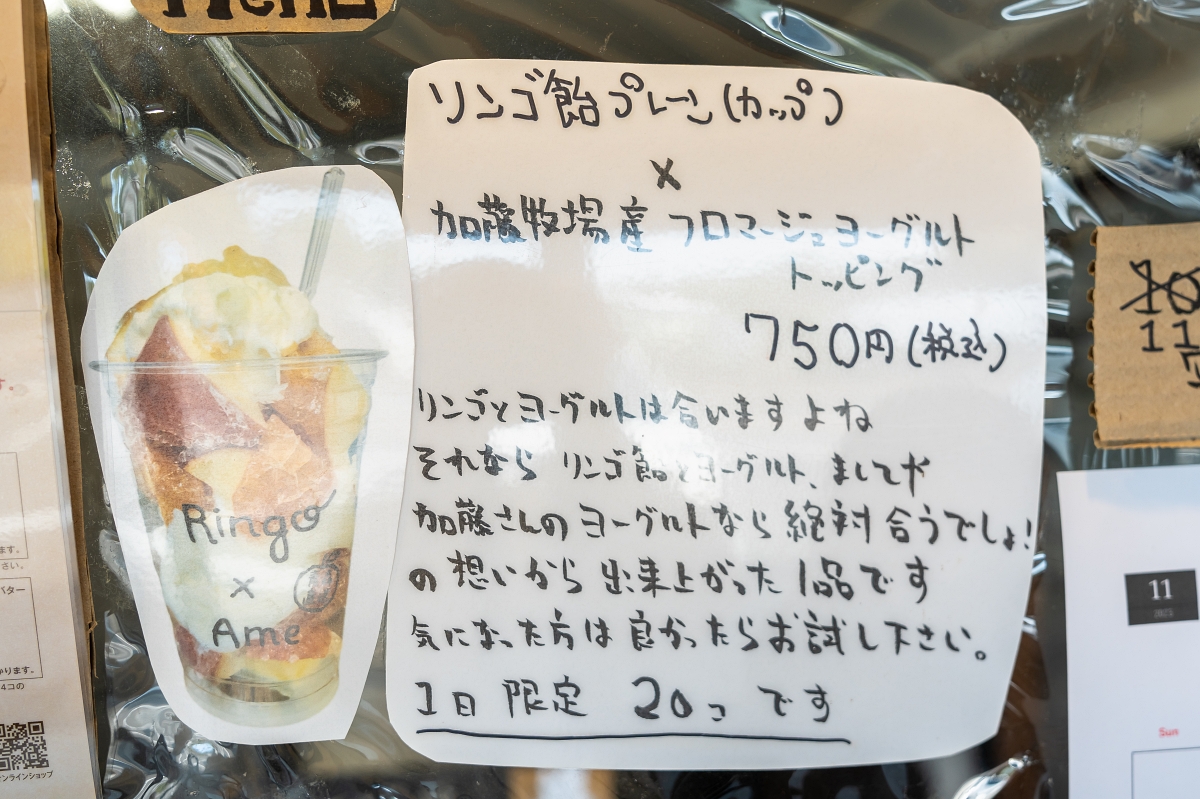 Menu
リンゴ飴プレーン(カップ)
×
加藤牧場産 フロマージュヨーグルト
トッピング
750円(税込)
リンゴとヨーグルトは合いますよね
それなら リンゴ飴とヨーグルト、ましてや
加藤さんのヨーグルトなら絶対合うでしょ!
の想いから出来上がった1品です
気になった方は良かったらお試し下さい。
1日 限定 20コ です
Ringo
×
Ame
ます。
さい。
バター
ります。
4コの
オンラインショップ
11
11
2025
Sun